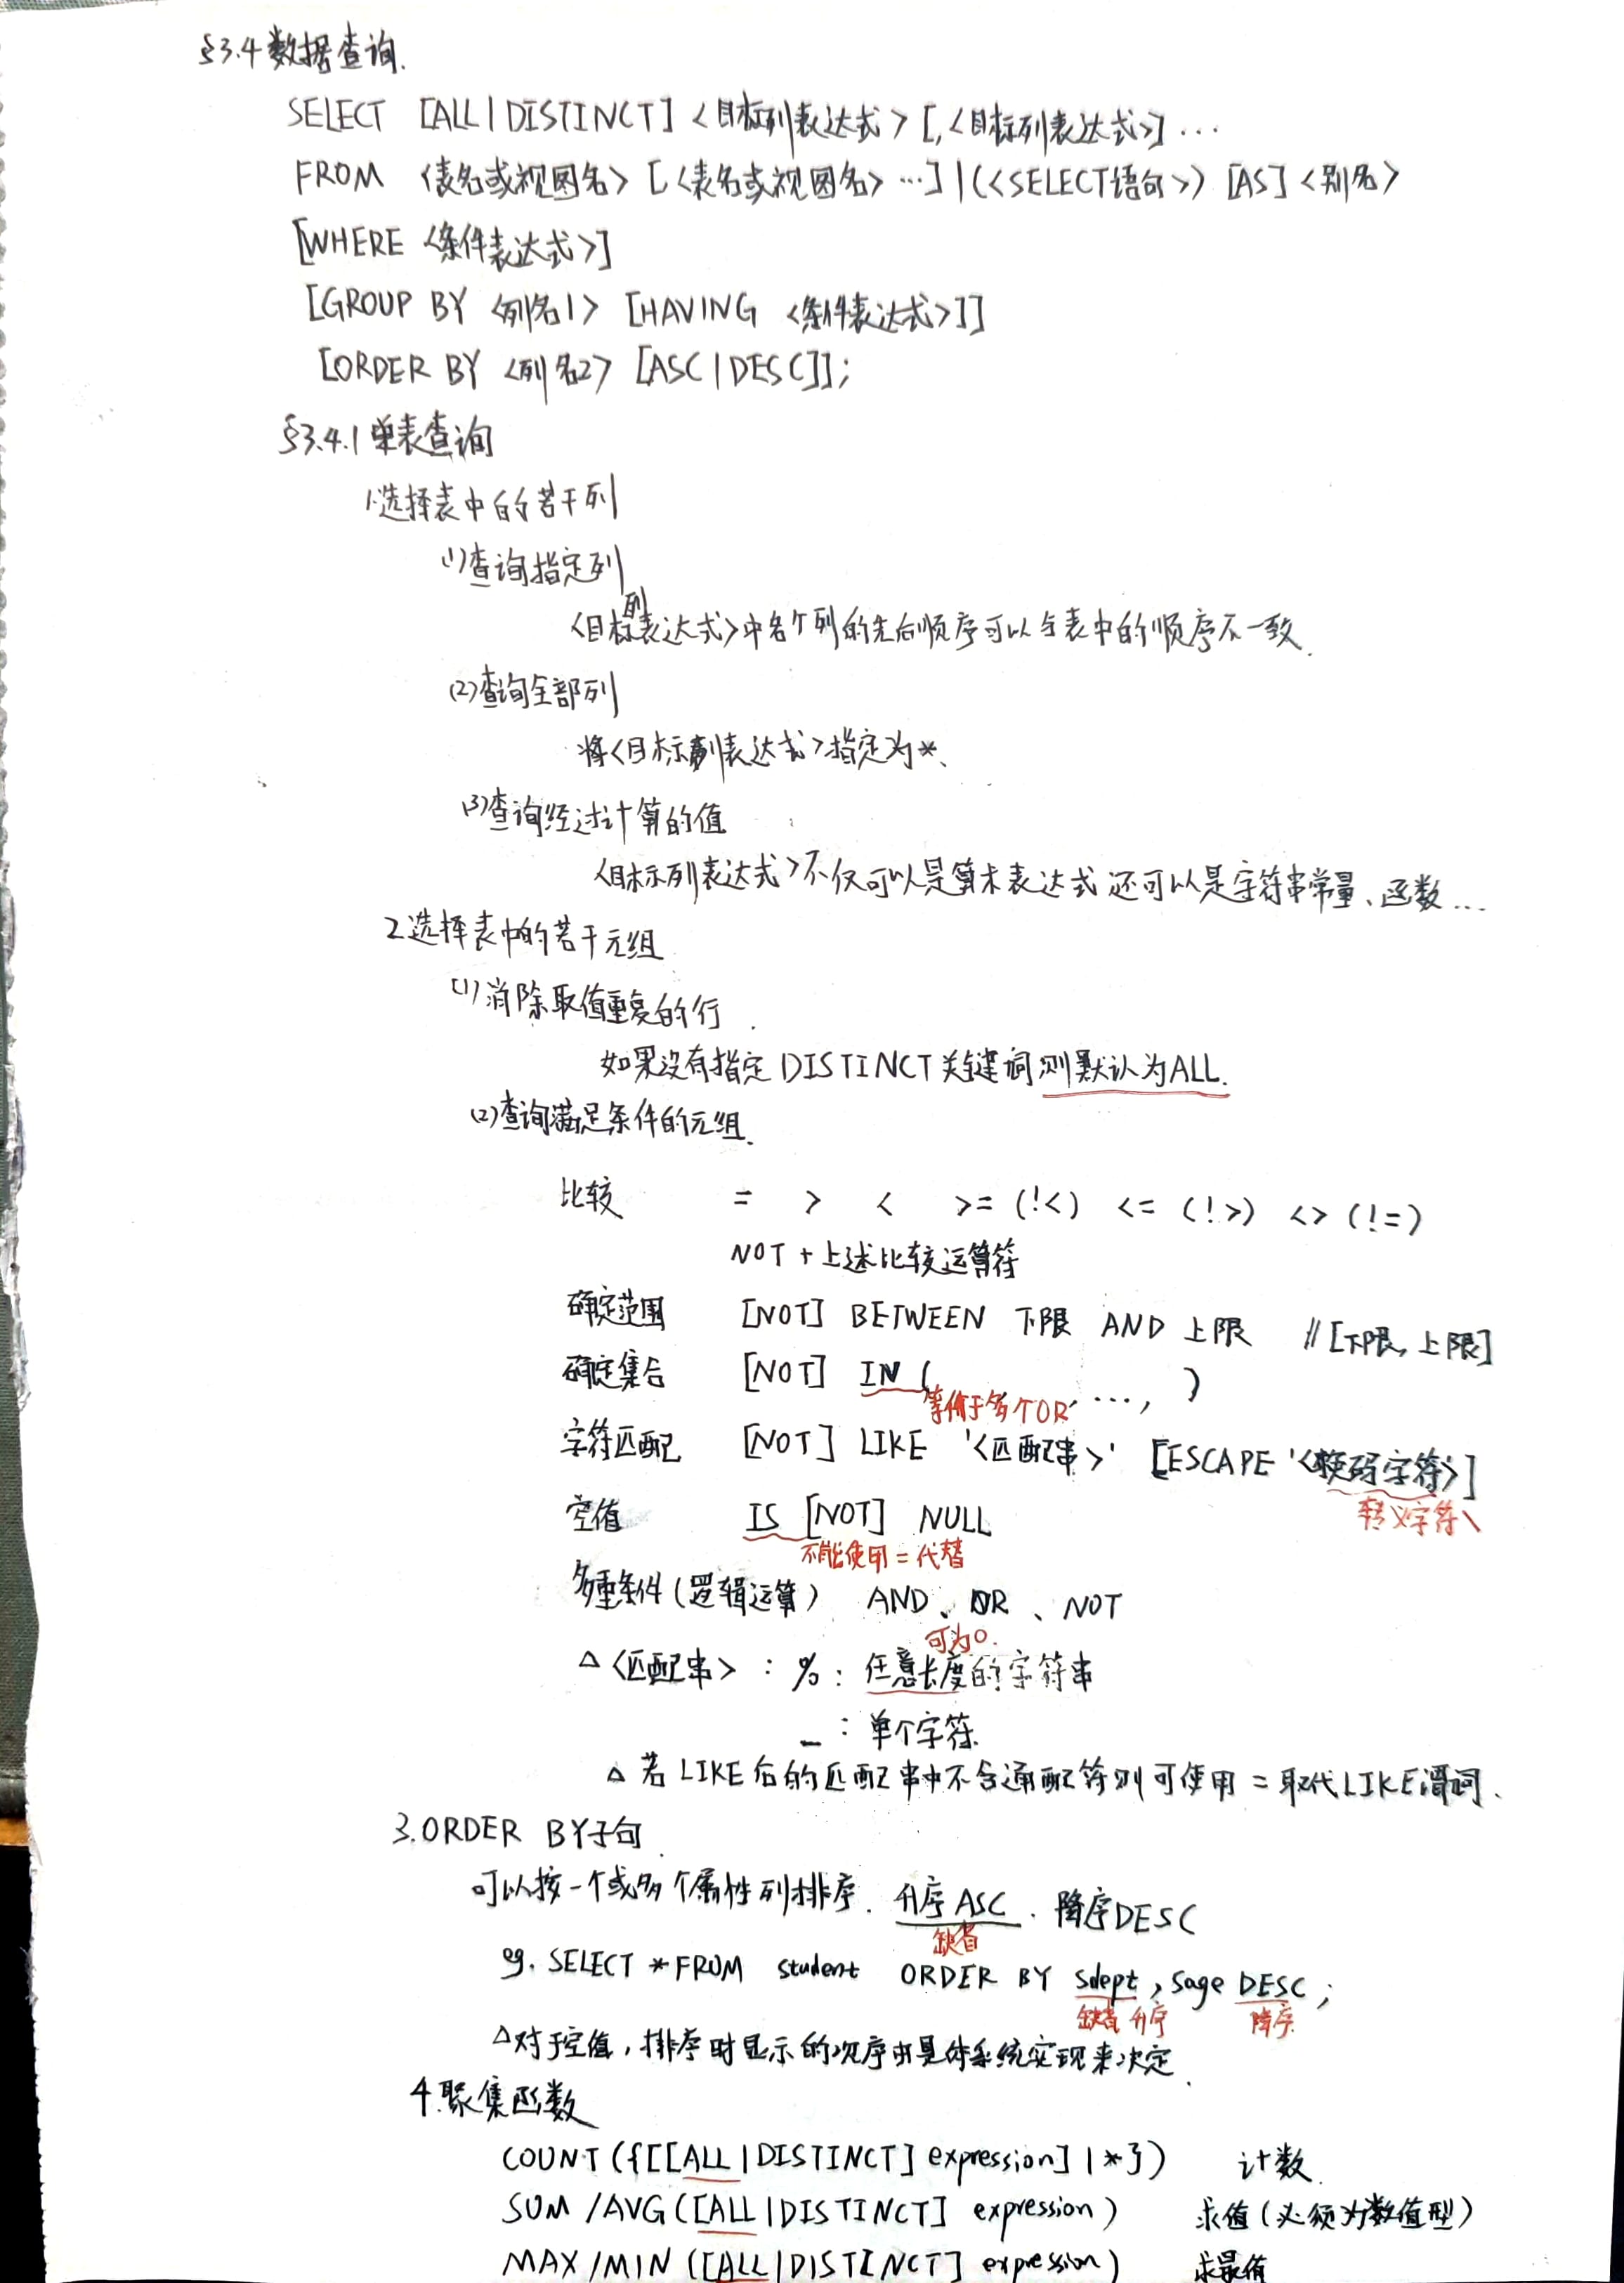 §3.4 数据查询.
SELECT [ALL|DISTINCT] <目标列表达式> [,<目标列表达式>] ...
FROM <表名或视图名> [<表名或视图名> ...] | (<SELECT语句>) [AS] <别名>
[WHERE <条件表达式>]
[GROUP BY <列名1> [HAVING <条件表达式>]]
[ORDER BY <列名2> [ASC|DESC]];
§3.4.1 单表查询
1.选择表中的若干列
(1)查询指定列
<目标列表达式>中各个列的先后顺序可以与表中的顺序不一致.
(2)查询全部列
将<目标列表达式>指定为*、
(3)查询经过计算的值
<目标列表达式>不仅可以是算术表达式 还可以是字符串常量、函数...
2.选择表中的若干元组
(1)消除取值重复的行.
如果没有指定DISTINCT关键词则默认为ALL.
(2)查询满足条件的元组.
比较 = > < >= (!<) <= (!>) <> (!=)
NOT + 上述比较运算符
确定范围 [NOT] BETWEEN 下限 AND 上限 //[下限, 上限]
确定集合 [NOT] IN ( , ..., )
等价于多个OR
字符匹配 [NOT] LIKE '<匹配串>' [ESCAPE '<换码字符>']
转义字符\
空值 IS [NOT] NULL
不能使用 = 代替
多重条件(逻辑运算) AND、OR、NOT
可为0.
△<匹配串> : % : 任意长度的字符串
_ : 单个字符.
△ 若LIKE后的匹配串中不含通配符则可使用 = 取代LIKE谓词、
3.ORDER BY子句.
可以按一个或多个属性列排序. 升序ASC. 降序DESC
缺省
eg. SELECT * FROM student ORDER BY Sdept, Sage DESC;
缺省 升序 降序.
△对于空值,排序时显示的次序由具体系统实现来决定.
4.聚集函数
COUNT({[[ALL|DISTINCT] expression] | *}) 计数.
SUM/AVG([ALL|DISTINCT] expression) 求值(必须为数值型)
MAX/MIN([ALL|DISTINCT] expression) 求最值